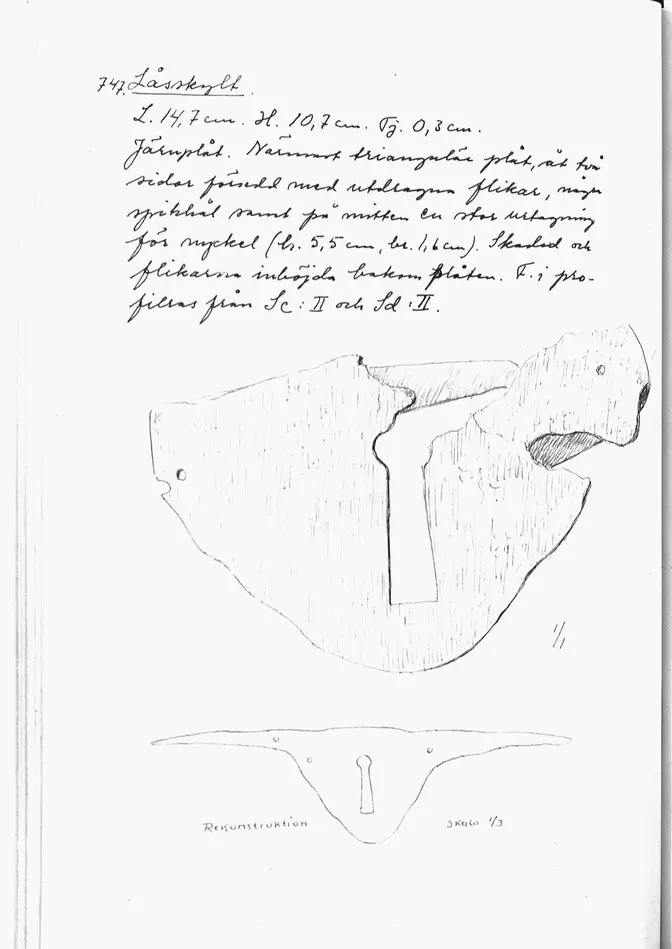 747. Låsskylt.
L. 14,7 cm. H. 10,7 cm. Tj. 0,3 cm.
Järnplåt. Närmast triangulär plåt, åt två
sidor försedd med utdragna flikar, några
spikhål samt på mitten en stor urtagning
för nyckel (h. 5,5 cm, br. 1,6 cm). Skadad och
flikarna inböjda bakom plåten. F. i pro-
filras från Sc : II och Sd : II.
1/1
Rekonstruktion Skala 1/3